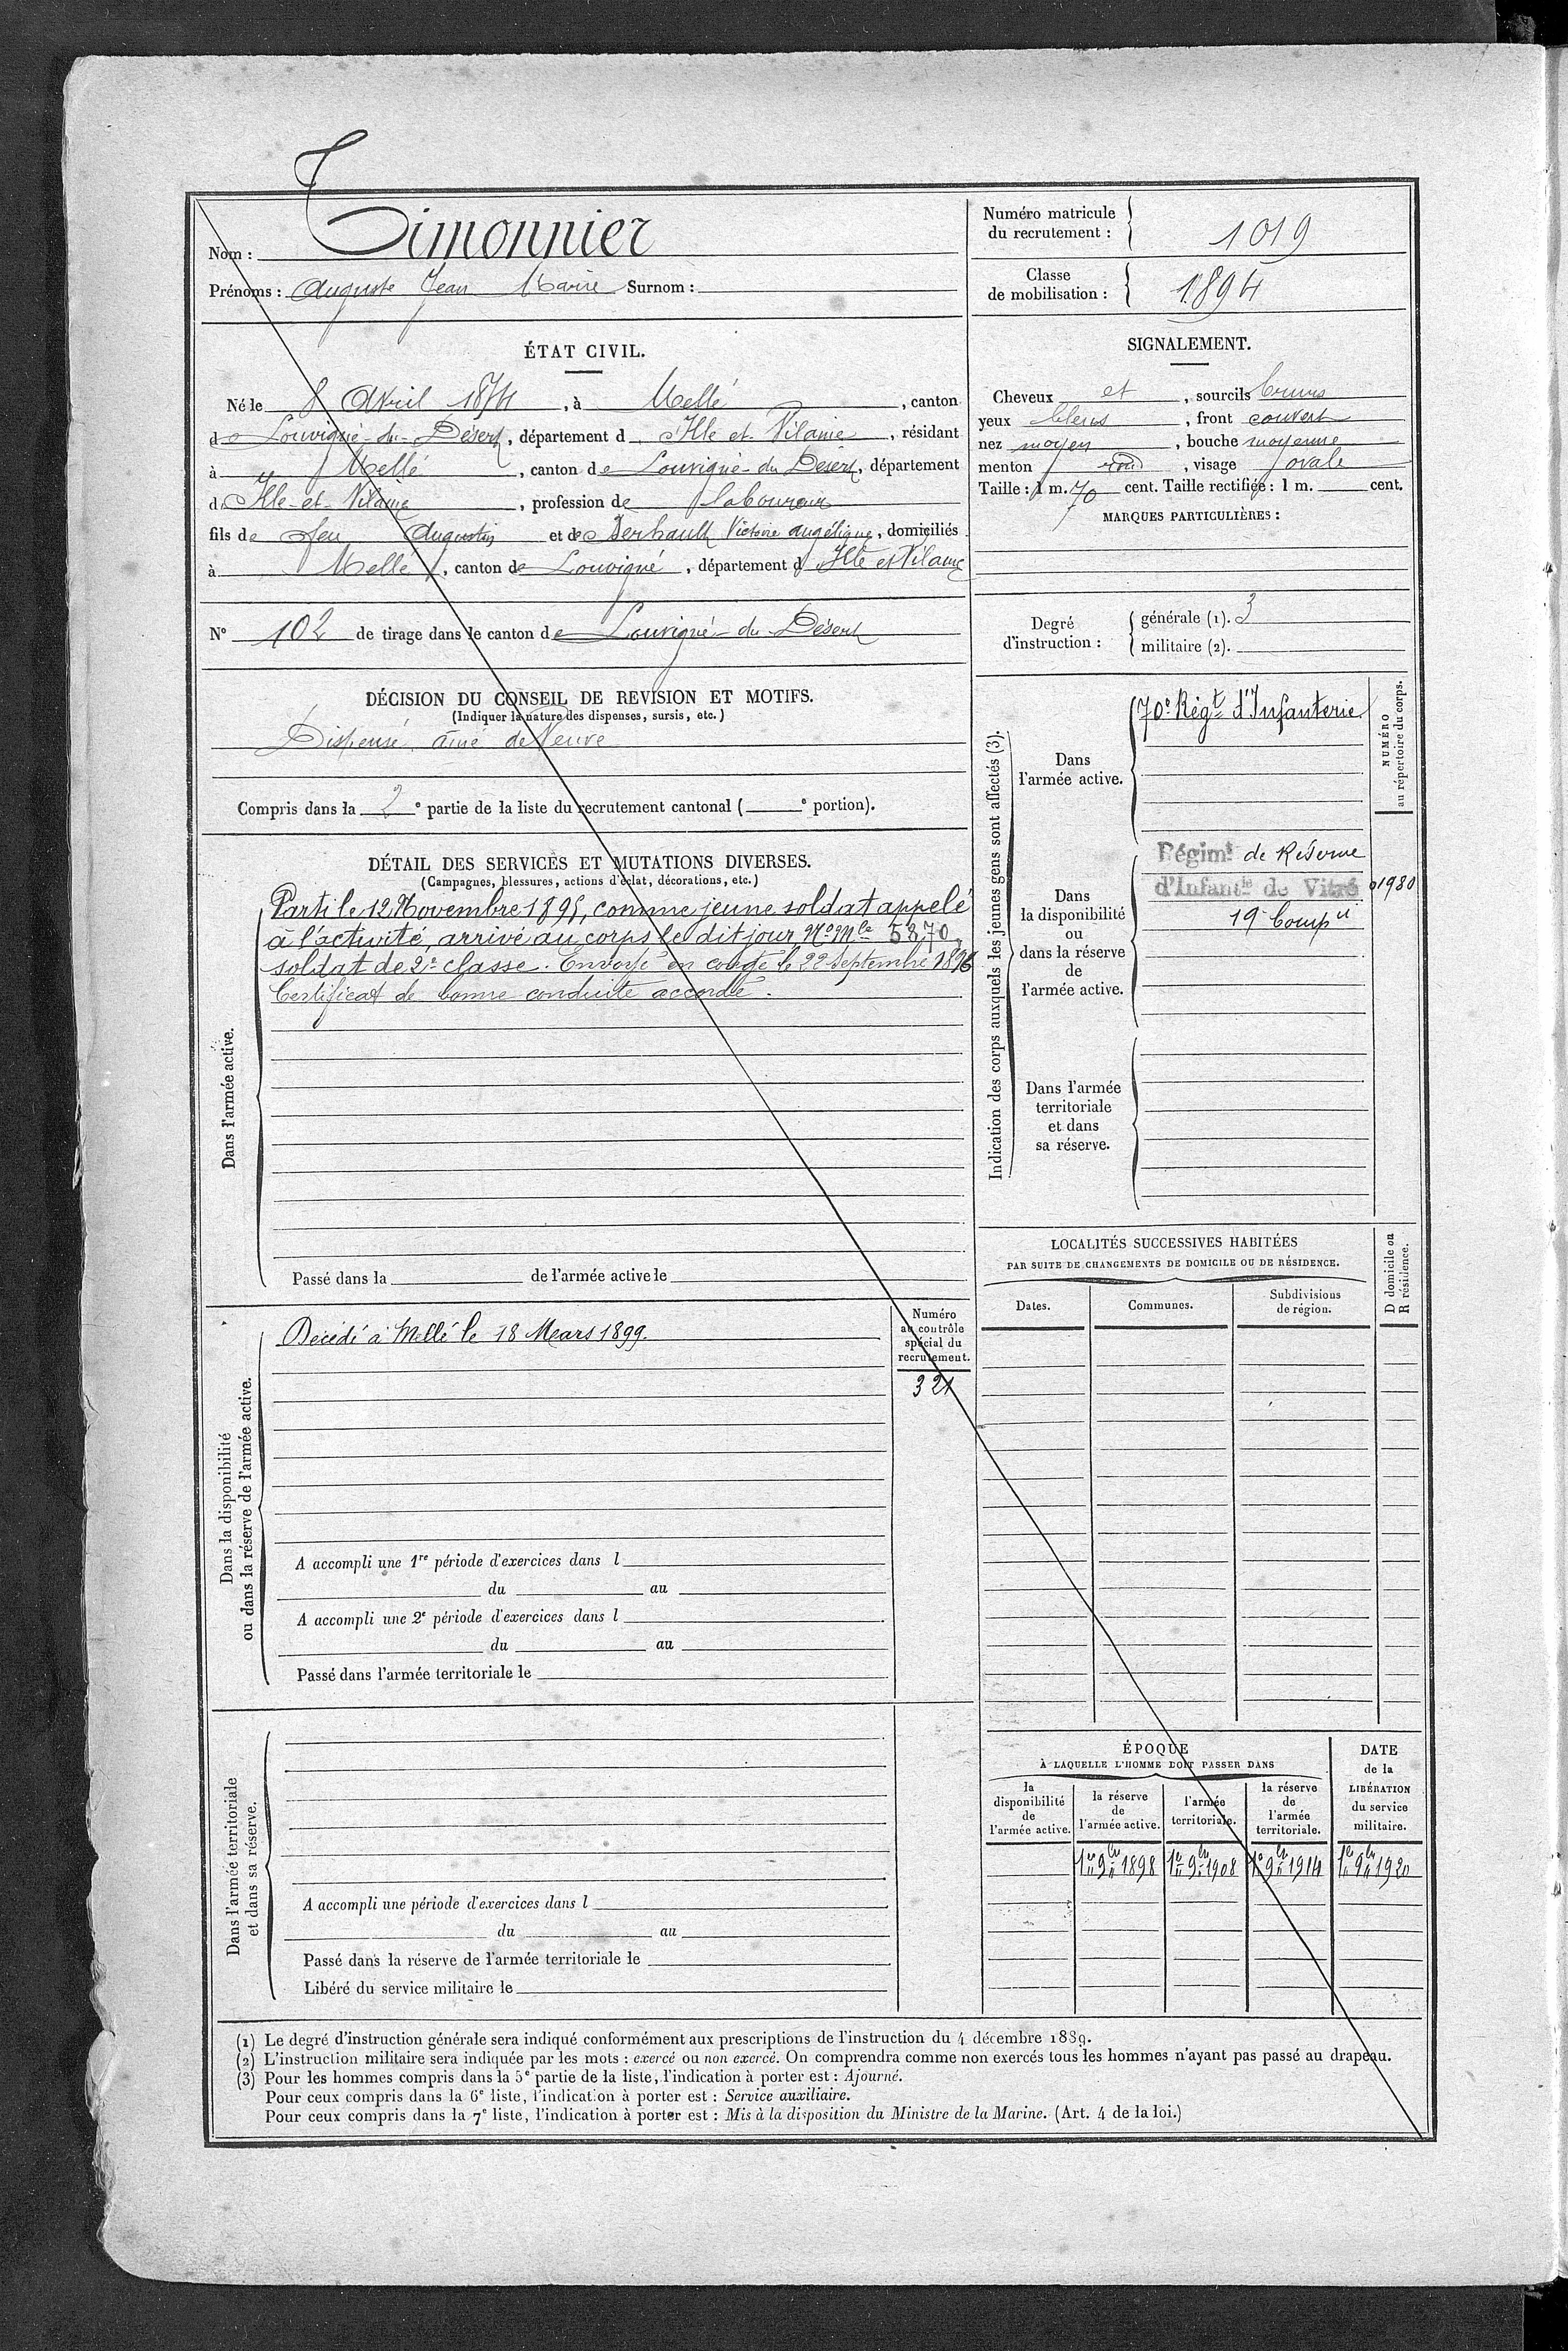 Nom : Timonnier
Prénoms : Auguste Jean Marie Surnom :
Numéro matricule du recrutement : 1019
Classe de mobilisation : 1894
ÉTAT CIVIL.
Né le 8 Avril 1874, à Mellé, canton
de Louvigné-du-Désert, département d Ille et Vilaine, résidant
à Mellé, canton de Louvigné-du-Désert, département
d'Ille-et-Vilaine, profession de laboureur
fils de feu Augustin et de Derhault Victoire angélique, domiciliés
à Mellé, canton de Louvigné, département d Ille et Vilaine
N° 102 de tirage dans le canton de Louvigné-du-Désert
SIGNALEMENT.
Cheveux et, sourcils bruns
yeux bleus, front couvert
nez moyen, bouche moyenne
menton rond, visage ovale
Taille : 1 m. 70 cent. Taille rectifiée : 1 m. cent.
MARQUES PARTICULIÈRES :
Degré d'instruction : générale (1). 3
militaire (2).
DÉCISION DU CONSEIL DE REVISION ET MOTIFS.
(Indiquer la nature des dispenses, sursis, etc.)
Dispensé aîné de Veuve
Compris dans la 2e partie de la liste du recrutement cantonal ( e portion).
DÉTAIL DES SERVICES ET MUTATIONS DIVERSES.
(Campagnes, blessures, actions d'éclat, décorations, etc.)
Dans l'armée active.
Parti le 12 Novembre 1895, comme jeune soldat appelé
à l'activité, arrivé au corps le dit jour, No Mle 5870,
soldat de 2e classe. Envoyé en congé le 22 Septembre 1896
Certificat de bonne conduite accordé.
Passé dans la de l'armée active le
Indication des corps auxquels les jeunes gens sont affectés (3).
NUMÉRO au répertoire du corps.
Dans l'armée active.
70e Régt d'Infanterie
Dans la disponibilité ou dans la réserve de l'armée active.
Régimt de Réserve
d'Infantie de Vitré 01980
19 Compie
Dans l'armée territoriale et dans sa réserve.
LOCALITÉS SUCCESSIVES HABITÉES
PAR SUITE DE CHANGEMENTS DE DOMICILE OU DE RÉSIDENCE.
Dates. Communes. Subdivisions de région. D domicile ou R résidence.
Dans la disponibilité ou dans la réserve de l'armée active.
Décédé à Mellé le 18 Mars 1899.
Numéro au contrôle spécial du recrutement.
321
A accompli une 1re période d'exercices dans l
du au
A accompli une 2e période d'exercices dans l
du au
Passé dans l'armée territoriale le
Dans l'armée territoriale et dans sa réserve.
A accompli une période d'exercices dans l
du au
Passé dans la réserve de l'armée territoriale le
Libéré du service militaire le
ÉPOQUE
À LAQUELLE L'HOMME DOIT PASSER DANS
la disponibilité de l'armée active. la réserve de l'armée active. l'armée territoriale. la réserve de l'armée territoriale.
DATE de la LIBÉRATION du service militaire.
1er 9bre 1898 1er 9bre 1908 1er 9bre 1914 1er 9bre 1920
(1) Le degré d'instruction générale sera indiqué conformément aux prescriptions de l'instruction du 4 décembre 1889.
(2) L'instruction militaire sera indiquée par les mots : exercé ou non exercé. On comprendra comme non exercés tous les hommes n'ayant pas passé au drapeau.
(3) Pour les hommes compris dans la 5e partie de la liste, l'indication à porter est : Ajourné.
Pour ceux compris dans la 6e liste, l'indication à porter est : Service auxiliaire.
Pour ceux compris dans la 7e liste, l'indication à porter est : Mis à la disposition du Ministre de la Marine. (Art. 4 de la loi.)